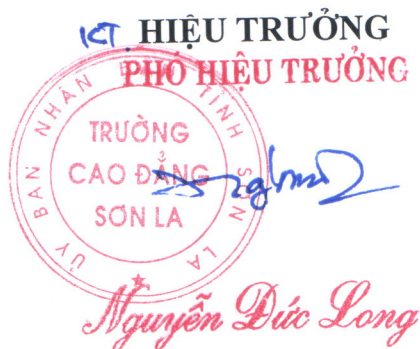 KT HIỆU TRƯỞNG
PHÓ HIỆU TRƯỞNG
ỦY BAN NHÂN DÂN TỈNH SƠN LA
TRƯỜNG
CAO ĐẲNG
SƠN LA
Nguyễn Đức Long